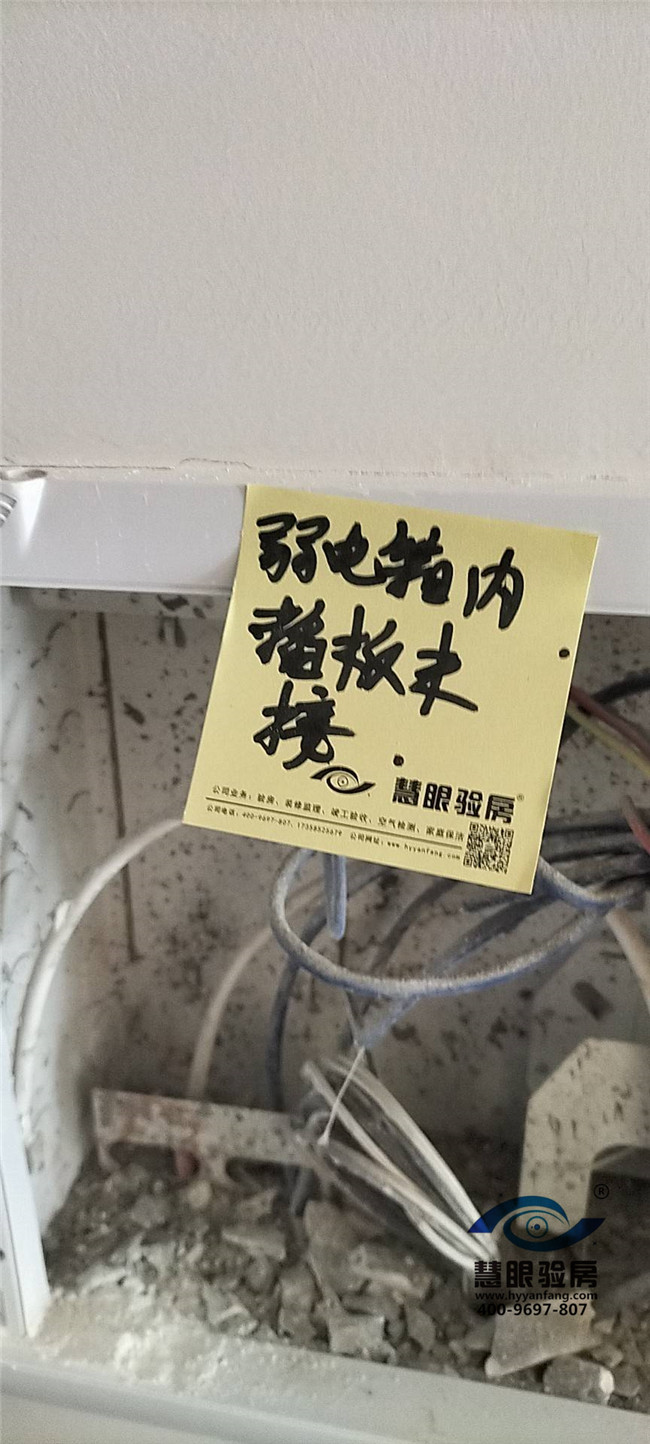 弱电箱内
插板未
接
慧眼验房®
公司业务:验房、装修监理、竣工验收、空气检测、家庭保洁
公司电话:400-9697-807、17358525679 公司网址:www.hyyanfang.com
®
慧眼验房
www.hyyanfang.com
400-9697-807